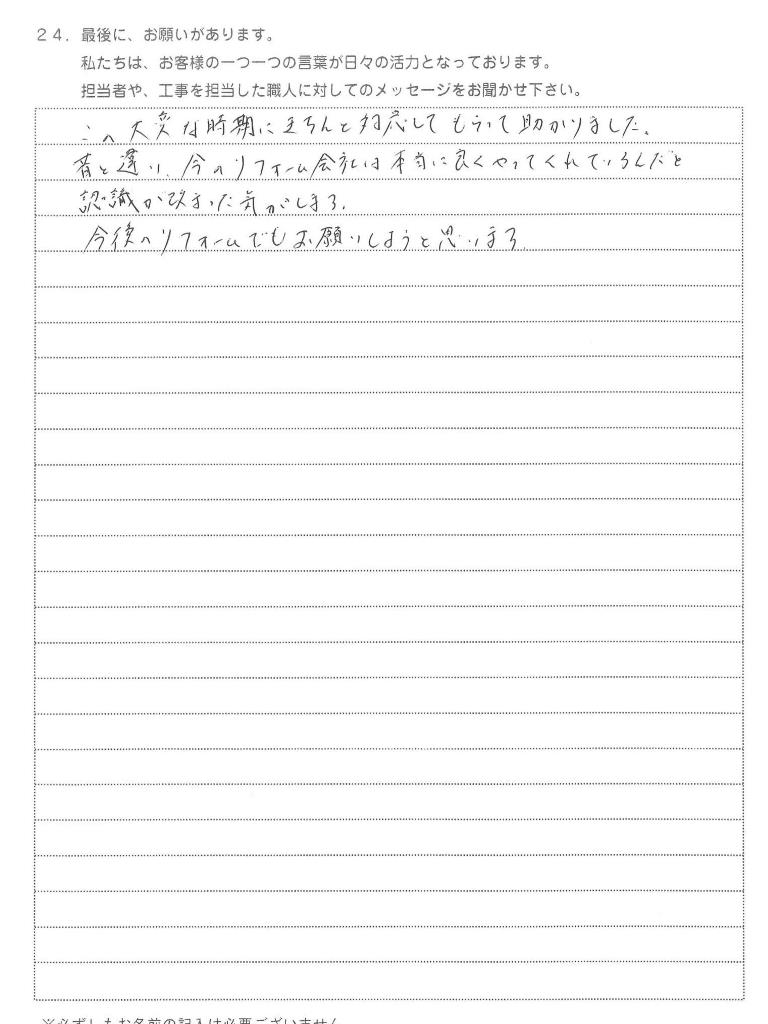 ２４．最後に、お願いがあります。
私たちは、お客様の一つ一つの言葉が日々の活力となっております。
担当者や、工事を担当した職人に対してのメッセージをお聞かせ下さい。
この大変な時期にきちんと対応してもらって助かりました。
昔と違い、今のリフォーム会社は本当に良くやってくれているんだと
認識が改まった気がします。
今後のリフォームでもお願いしようと思います。
※必ずしもお名前の記入は必要ございません